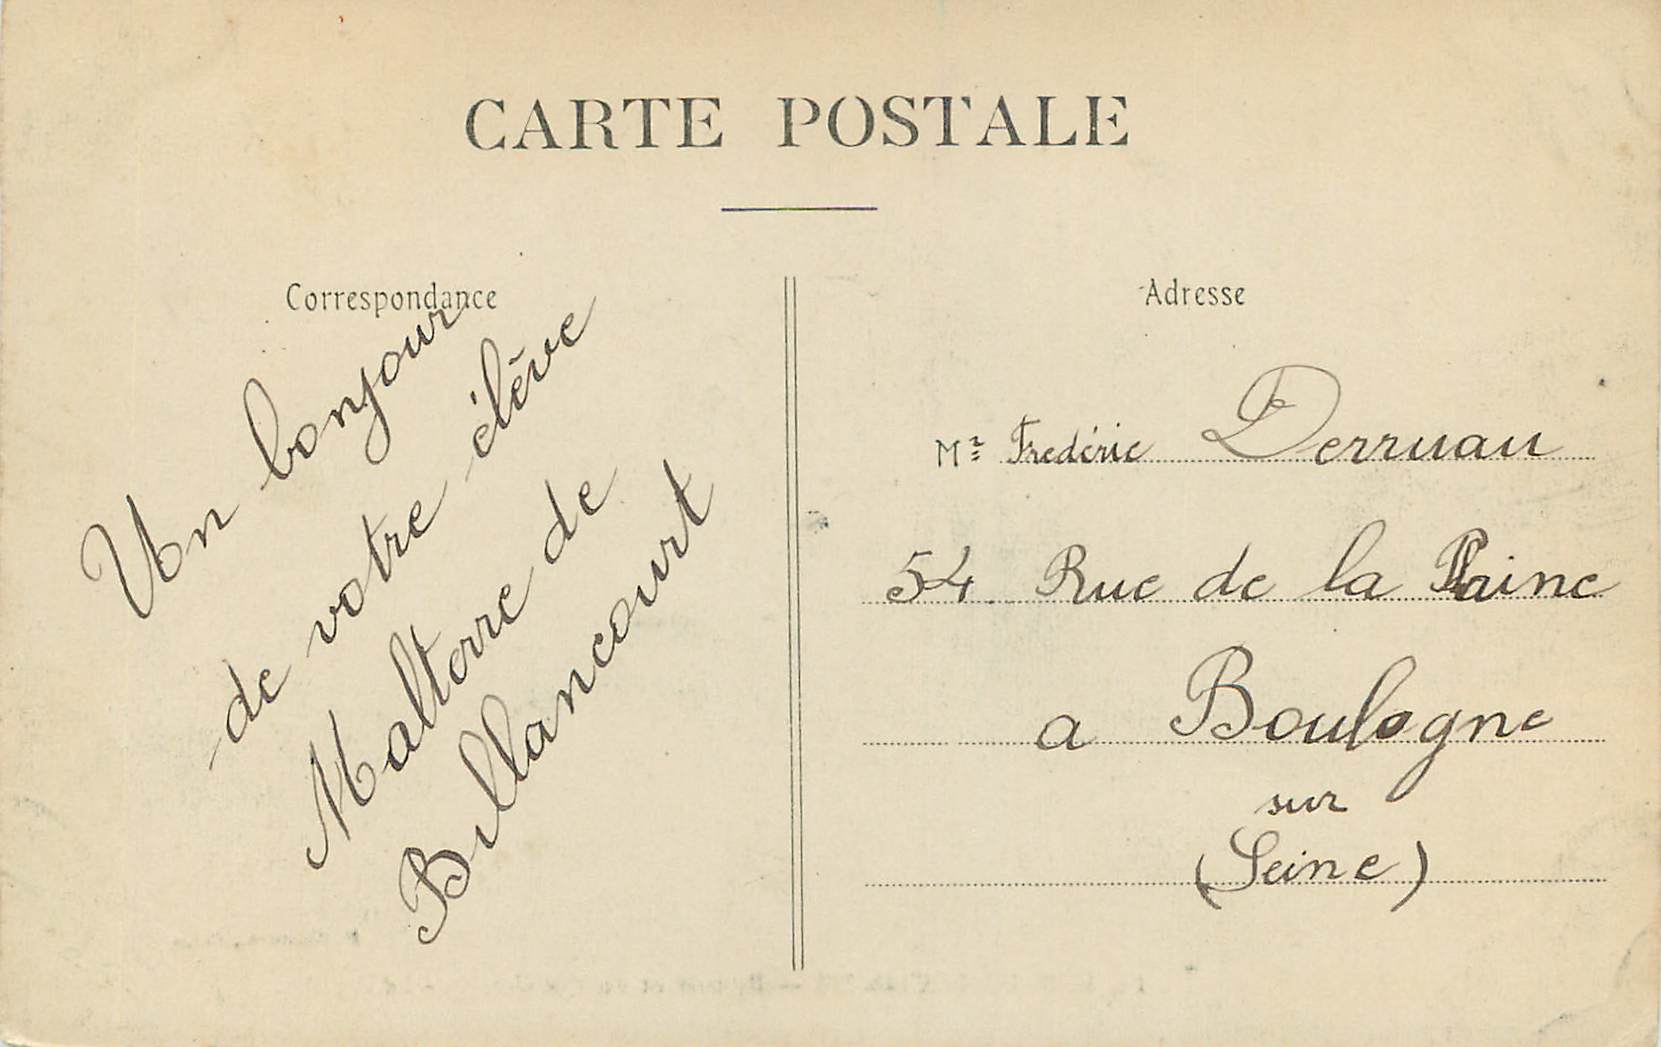 CARTE POSTALE
Correspondance
Un bonjour
de votre élève
Malterre de
Billancourt
Adresse
Mr Fredéric Derruau
54 Rue de la Plaine
a Boulogne
sur
(Seine)